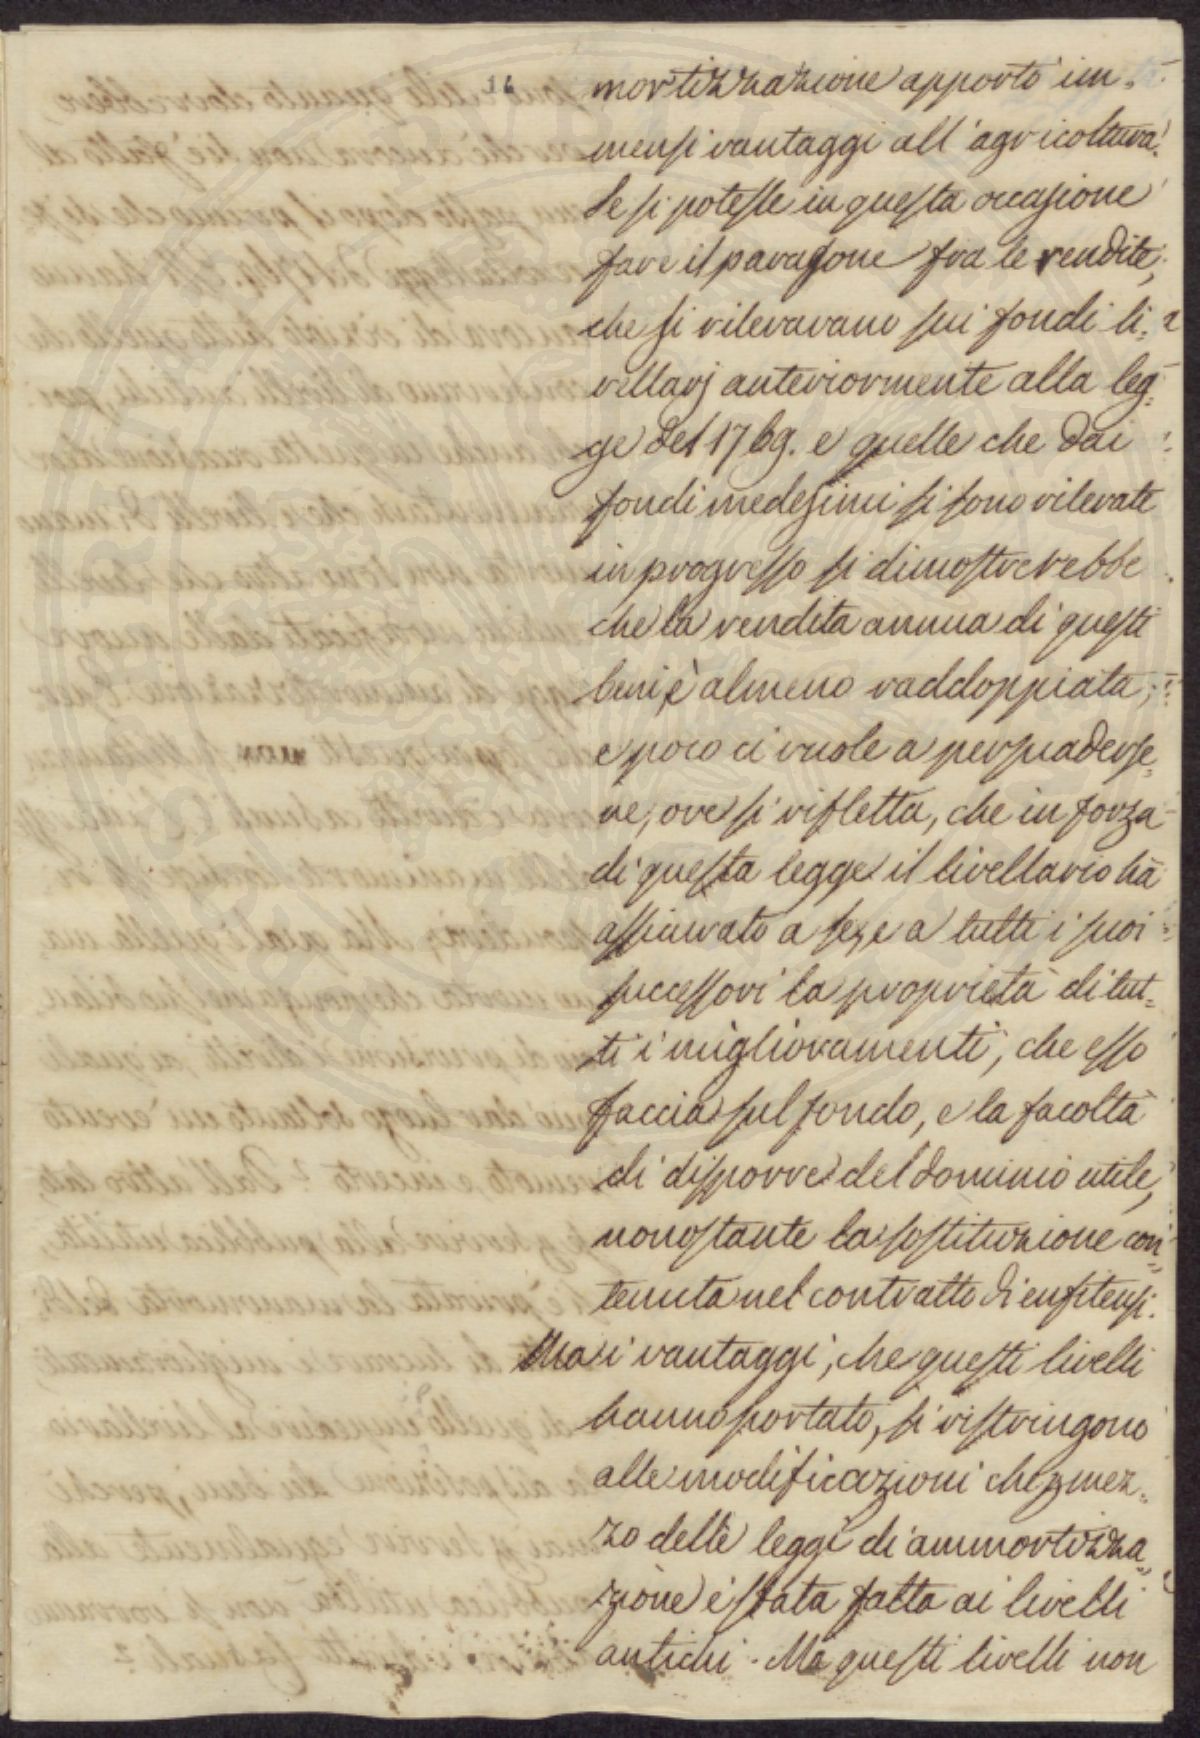 16
mortizzazione apportò im=
mensi vantaggi all'agricoltura.
Se si potesse in questa occasione
fare il paragone fra le rendite,
che si rilevavano sui fondi li=
vellarj anteriormente alla leg=
ge del 1769. e quelle che dai
fondi medesimi si sono rilevate
in progresso si dimostrerebbe
che la rendita annua di questi
beni è almeno raddoppiata;
e poco ci vuole a persuaderse=
ne, ove si rifletta, che in forza
di questa legge il livellario hà
assicurato a se, e a tutti i suoi
successori la proprietà di tut=
ti i miglioramenti, che esso
faccia sul fondo, e la facoltà
di disporre del dominio utile,
nonostante la sostituzione con=
tenuta nel contratto di enfiteusi.
Ma i vantaggi, che questi livelli
hanno portato, si ristringono
alle modificazioni che p mez=
zo delle leggi di ammortizza=
zione è stata fatta ai livelli
antichi. Ma questi livelli non